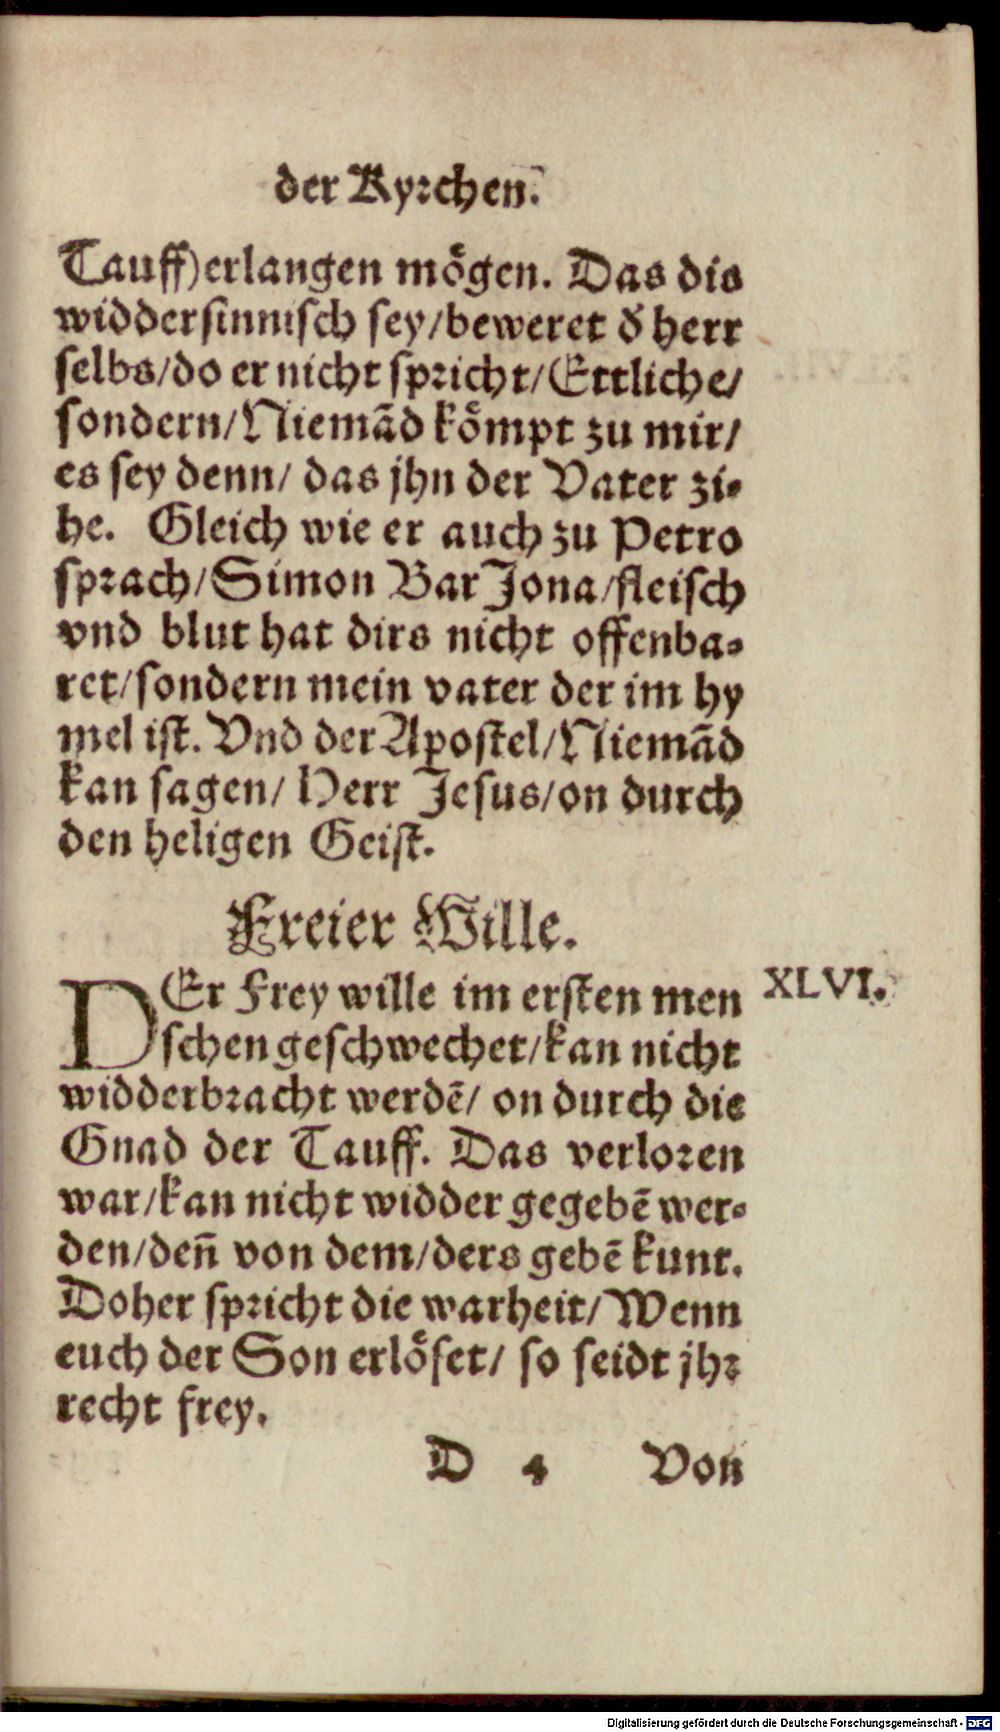 der Kyrchen.
Tauff) erlangen mögen. Das dis
widdersinnisch sey/beweret d̄ herr
selbs/do er nicht spricht/Ettliche/
sondern/Niemãd kömpt zu mir/
es sey denn/ das jhn der Vater zi-
he. Gleich wie er auch zu Petro
sprach/Simon Bar Jona/fleisch
vnd blut hat dirs nicht offenba-
ret/sondern mein vater der im hy
mel ist. Vnd der Apostel/Niemãd
kan sagen/ Herr Jesus/on durch
den heligen Geist.
Freier Wille.
DEr Frey wille im ersten men
XLVI.
schen geschwechet/kan nicht
widderbracht werdẽ/ on durch die
Gnad der Tauff. Das verloren
war/kan nicht widder gegebẽ wer-
den/deñ von dem/ders gebẽ kunt.
Doher spricht die warheit/Wenn
euch der Son erlöset/ so seidt jhr
recht frey.
D 4 Von
Digitalisierung gefördert durch die Deutsche Forschungsgemeinschaft - DFG